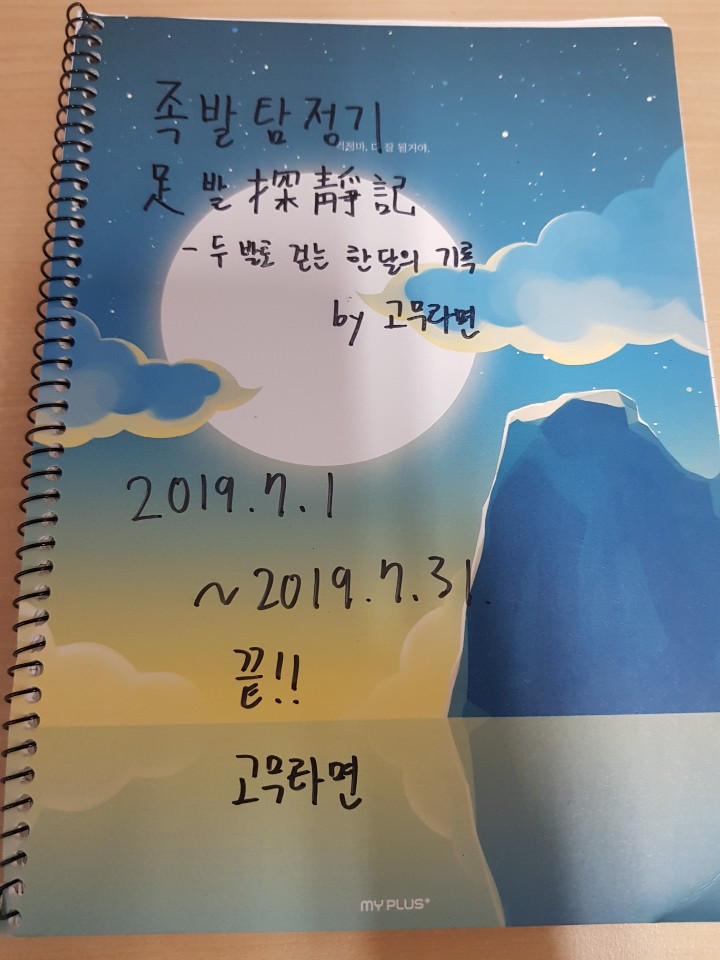 족발탐정기
걱정마, 다 잘 될거야.
足발探靜記
- 두 발로 걷는 한 달의 기록
by 고무라면
2019.7.1
~2019.7.31.
끝!!
고무라면
MY PLUS+